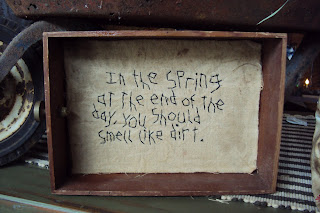 In the Spring
at the end of the
day, you should
smell like dirt.